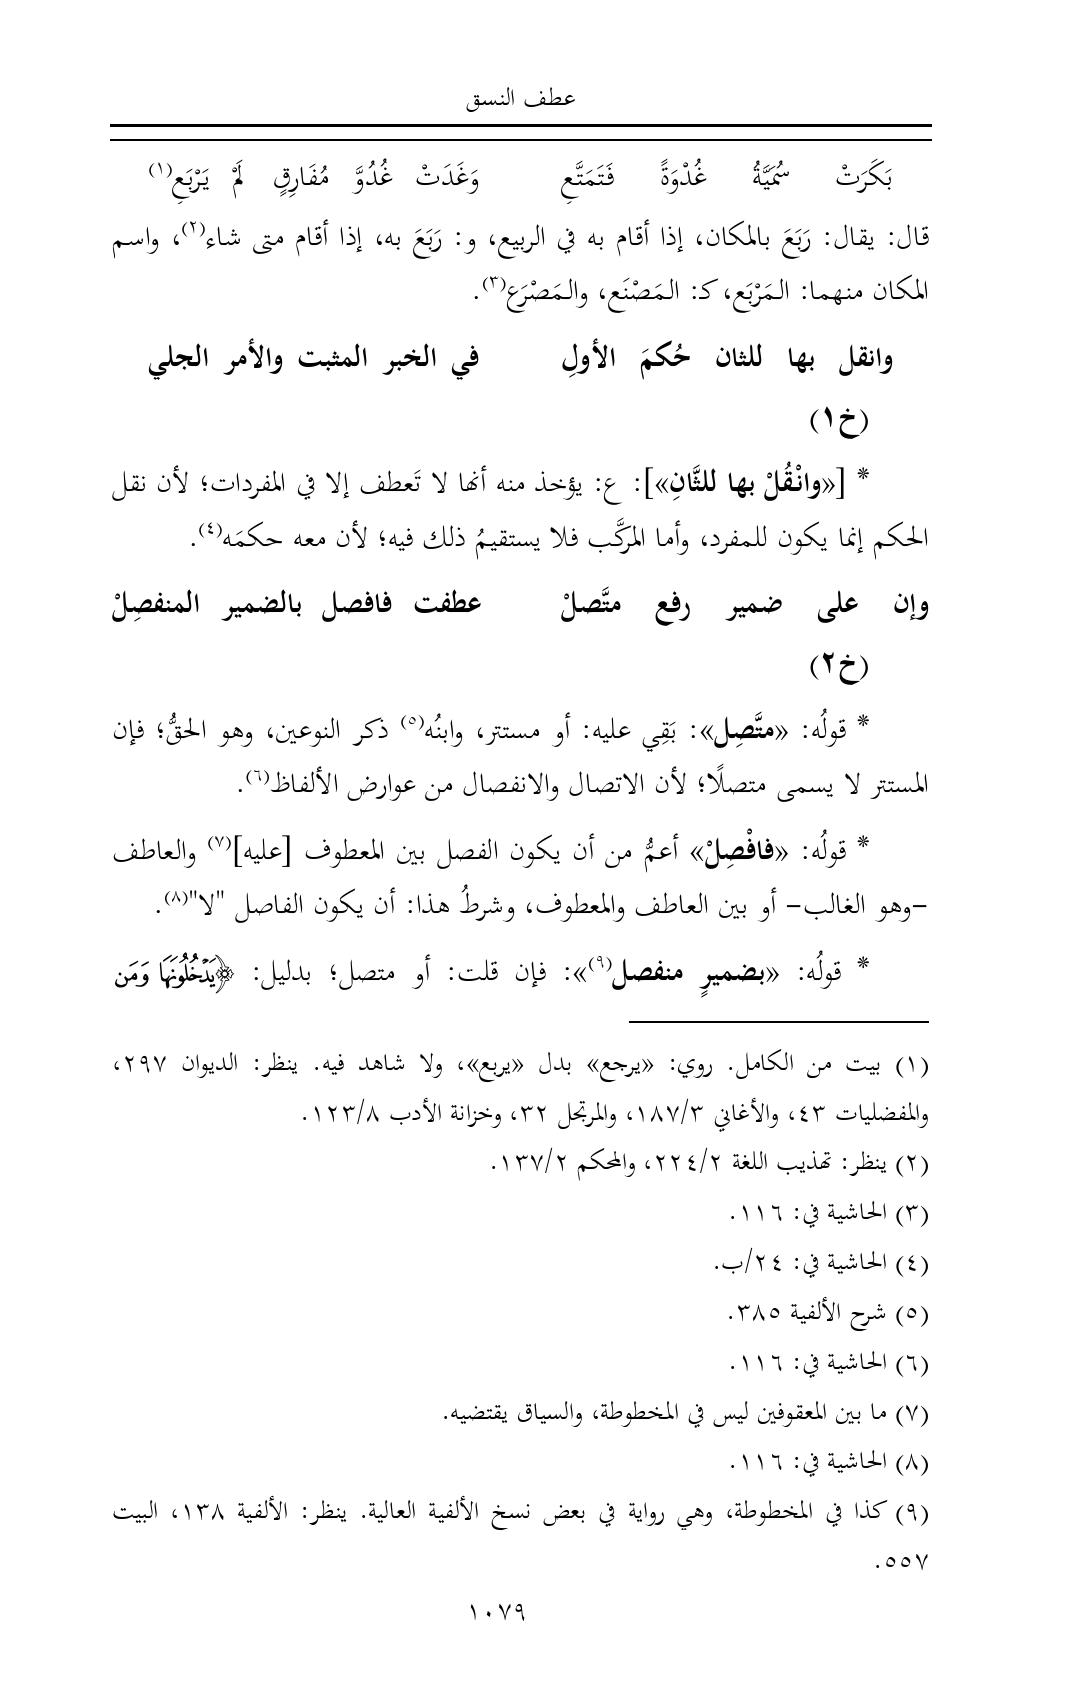 عطف النسق
بَكَرَتْ سُمَيَّةُ غُدْوَةً فَتَمَتَّعِ وَغَدَتْ غُدُوَّ مُفَارِقٍ لَمْ يَرْبَعِ(١)
قال: يقال: رَبَعَ بالمكان، إذا أقام به في الربيع، و: رَبَعَ به، إذا أقام متى شاء(٢)، واسم
المكان منهما: المَرْبَع، كـ: المَصْنَع، والمَصْرَع(٣).
وانقل بها للثان حُكمَ الأولِ في الخبر المثبت والأمر الجلي
(خ١)
* [«وانْقُلْ بها للثَّانِ»]: ع: يؤخذ منه أنها لا تَعطف إلا في المفردات؛ لأن نقل
الحكم إنما يكون للمفرد، وأما المركَّب فلا يستقيمُ ذلك فيه؛ لأن معه حكمَه(٤).
وإن على ضمير رفع متَّصلْ عطفت فافصل بالضمير المنفصِلْ
(خ٢)
* قولُه: «متَّصِل»: بَقِي عليه: أو مستتر، وابنُه(٥) ذكر النوعين، وهو الحقُّ؛ فإن
المستتر لا يسمى متصلًا؛ لأن الاتصال والانفصال من عوارض الألفاظ(٦).
* قولُه: «فافْصِلْ» أعمُّ من أن يكون الفصل بين المعطوف [عليه](٧) والعاطف
-وهو الغالب- أو بين العاطف والمعطوف، وشرطُ هذا: أن يكون الفاصل "لا"(٨).
* قولُه: «بضميرٍ منفصل(٩)»: فإن قلت: أو متصل؛ بدليل: ﴿يَدْخُلُونَهَا وَمَن
(١) بيت من الكامل. روي: «يرجع» بدل «يربع»، ولا شاهد فيه. ينظر: الديوان ٢٩٧،
والمفضليات ٤٣، والأغاني ١٨٧/٣، والمرتجل ٣٢، وخزانة الأدب ١٢٣/٨.
(٢) ينظر: تهذيب اللغة ٢٢٤/٢، والمحكم ١٣٧/٢.
(٣) الحاشية في: ١١٦.
(٤) الحاشية في: ٢٤/ب.
(٥) شرح الألفية ٣٨٥.
(٦) الحاشية في: ١١٦.
(٧) ما بين المعقوفين ليس في المخطوطة، والسياق يقتضيه.
(٨) الحاشية في: ١١٦.
(٩) كذا في المخطوطة، وهي رواية في بعض نسخ الألفية العالية. ينظر: الألفية ١٣٨، البيت
٥٥٧.
١٠٧٩